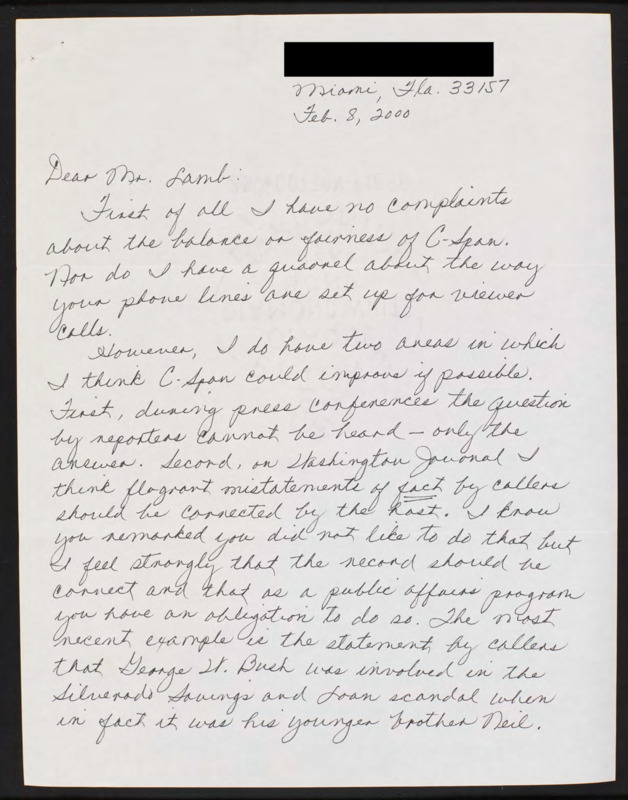 Miami, Fla. 33157
Feb. 8, 2000
Dear Mr. Lamb:
First of all I have no complaints
about the balance or fairness of C-Span.
Nor do I have a quarrel about the way
your phone lines are set up for viewer
calls.
However, I do have two areas in which
I think C-Span could improve if possible.
First, during press conferences the question
by reporters cannot be heard — only the
answer. Second, on Washington Journal I
think flagrant mistatements of fact by callers
should be corrected by the host. I know
you remarked you did not like to do that but
I feel strongly that the record should be
correct and that as a public affairs program
you have an obligation to do so. The most
recent example is the statement by callers
that George W. Bush was involved in the
Silverado Savings and Loan scandal when
in fact it was his younger brother Neil.